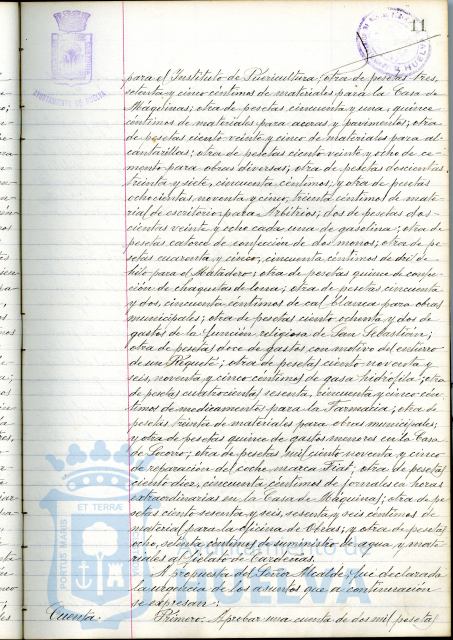 11
AYUNTAMIENTO DE HUELVA
para el Instituto de Puericultura; otra de pesetas tres,
setenta y cinco céntimos de materiales para la Casa de
Máquinas; otra de pesetas cincuenta y una, quince
céntimos de materiales para aceras y pavimentos; otra
de pesetas ciento veinte y cinco de materiales para al-
cantarillas; otra de pesetas ciento veinte y ocho de ce-
mento para obras diversas; otra de pesetas doscientas
treinta y siete, cincuenta céntimos; y otra de pesetas
ochocientas noventa y cinco, treinta céntimos de mate-
rial de escritorio para Arbitrios; dos de pesetas dos-
cientas veinte y ocho cada una de gasolina; otra de
pesetas catorce de confección de dos monos; otra de pe-
setas cuarenta y cinco, cincuenta céntimos de dril de
hilo para el Matadero; otra de pesetas quince de confec-
ción de chaquetas de lona; otra de pesetas cincuenta
y dos, cincuenta céntimos de cal blanca para obras
municipales; otra de pesetas ciento ochenta y dos de
gastos de la función religiosa de San Sebastián;
otra de pesetas doce de gastos con motivo del entierro
de un Requeté; otra de pesetas ciento noventa y
seis, noventa y cinco céntimos de gasa hidrófila; otra
de pesetas cuatrocientas sesenta, cincuenta y cinco cén-
timos de medicamentos para la Farmacia; otra de
pesetas treinta de materiales para obras municipales;
y otra de pesetas quince de gastos menores en la Casa
de Socorro; otra de pesetas mil ciento noventa y cinco
de reparación del coche marca Fiat; otra de pesetas
ciento diez, cincuenta céntimos de jornales en horas
extraordinarias en la Casa de Máquinas; otra de pe-
setas ciento sesenta y seis, sesenta y seis céntimos de
material para la oficina de Obras; y otra de pesetas
ocho, setenta céntimos de suministro de agua y mate-
riales al Celato de Cardeñas.
A propuesta del Señor Alcalde, fué declarada
la urgencia de los asuntos que a continuación
se expresan:
Cuenta. Primero: Aprobar una cuenta de dos mil pesetas
PORTUS MARIS ET TERRÆ
Ayuntamiento de
HUELVA